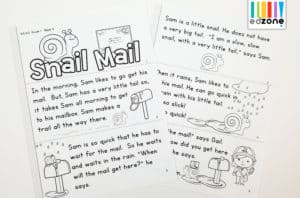 edzone
Snail Mail
In the morning, Sam likes to go get his
mail. But, Sam has a very little tail so,
it takes Sam all morning to get
to his mailbox. Sam makes a
trail all the way there.
Sam is so quick that he has to
wait for the mail. So he waits
and waits in the rain. "When
will the mail get here?" he
says.
Sam is a little snail. He does not have
a very big tail. "I am a slow, slow
snail, with a very little tail." says Sam.
it rains, Sam likes to
his mail. He can go quick in
rain with his little tail.
so slick!
quick!
the mail!" says Gail.
how did you get here
he says.